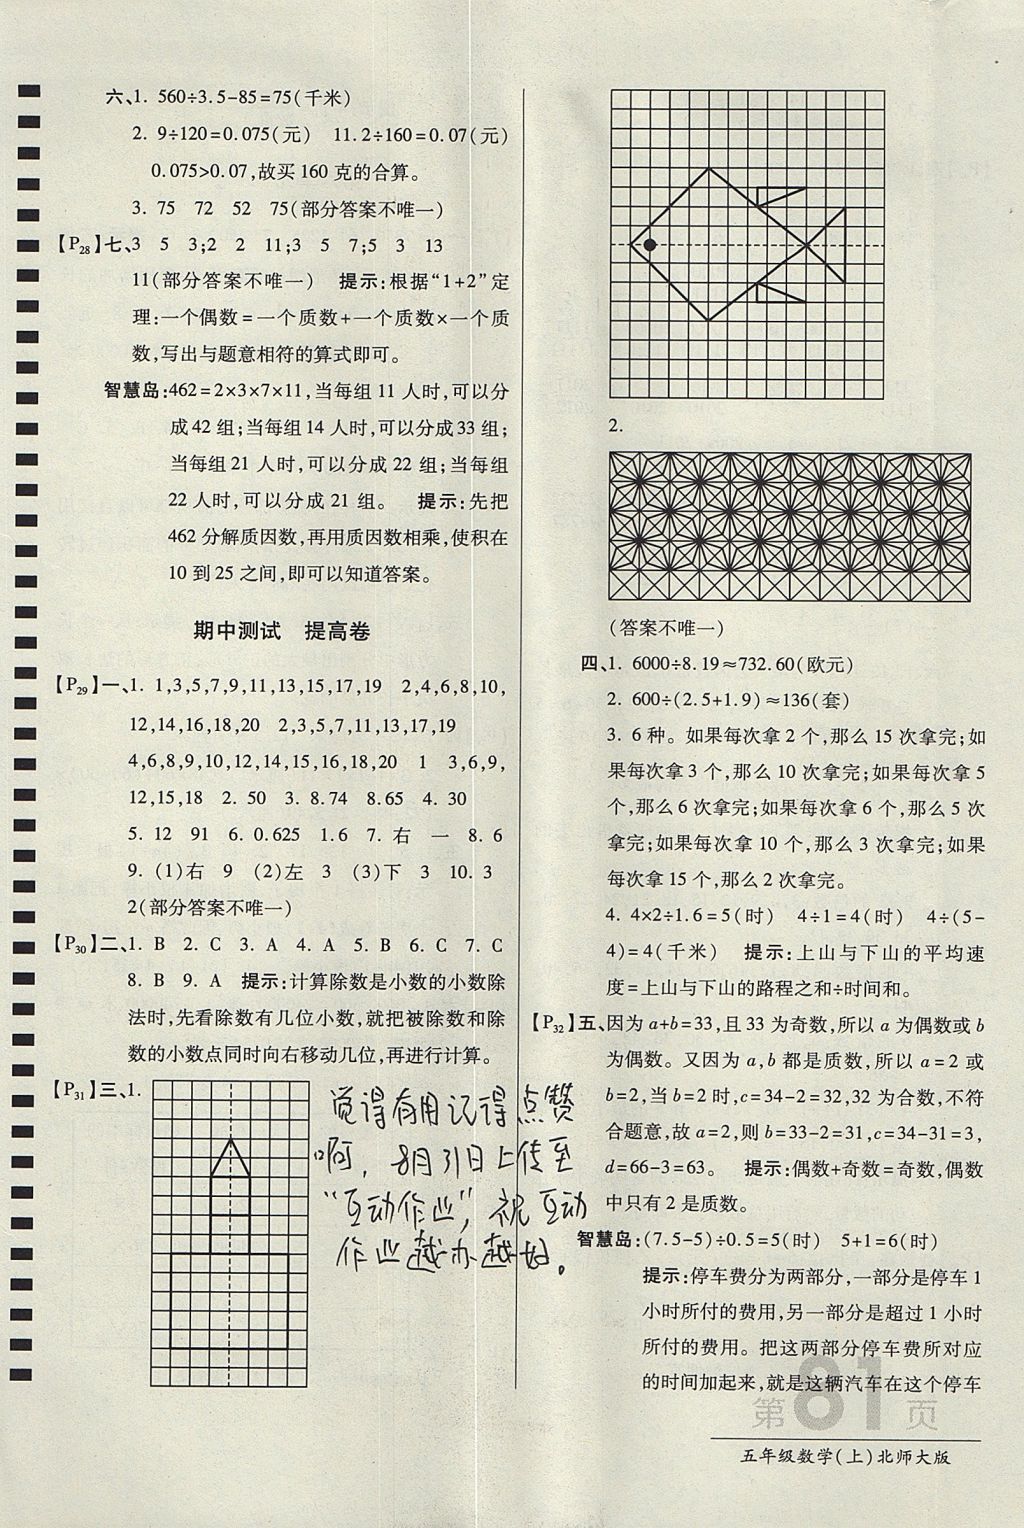 六、1. 560÷3.5-85=75(千米)
2. 9÷120=0.075(元) 11.2÷160=0.07(元)
0.075>0.07,故买 160 克的合算。
3. 75 72 52 75(部分答案不唯一)
【P28】七、3 5 3;2 2 11;3 5 7;5 3 13
11(部分答案不唯一) 提示:根据“1+2”定
理:一个偶数=一个质数+一个质数×一个质
数,写出与题意相符的算式即可。
智慧岛:462=2×3×7×11,当每组 11 人时,可以分
成 42 组;当每组 14 人时,可以分成 33 组;
当每组 21 人时,可以分成 22 组;当每组
22 人时,可以分成 21 组。 提示:先把
462 分解质因数,再用质因数相乘,使积在
10 到 25 之间,即可以知道答案。
期中测试 提高卷
【P29】一、1. 1,3,5,7,9,11,13,15,17,19 2,4,6,8,10,
12,14,16,18,20 2,3,5,7,11,13,17,19
4,6,8,9,10,12,14,15,16,18,20 1 3,6,9,
12,15,18 2. 50 3. 8.74 8.65 4. 30
5. 12 91 6. 0.625 1.6 7. 右 一 8. 6
9. (1)右 9 (2)左 3 (3)下 3 10. 3
2(部分答案不唯一)
【P30】二、1. B 2. C 3. A 4. A 5. B 6. C 7. C
8. B 9. A 提示:计算除数是小数的小数除
法时,先看除数有几位小数,就把被除数和除
数的小数点同时向右移动几位,再进行计算。
【P31】三、1.
觉得有用记得点赞
啊,8月31日上传至
“互动作业”,祝互动
作业越办越好。
2.
(答案不唯一)
四、1. 6000÷8.19≈732.60(欧元)
2. 600÷(2.5+1.9)≈136(套)
3. 6 种。如果每次拿 2 个,那么 15 次拿完;如
果每次拿 3 个,那么 10 次拿完;如果每次拿 5
个,那么 6 次拿完;如果每次拿 6 个,那么 5 次
拿完;如果每次拿 10 个,那么 3 次拿完;如果
每次拿 15 个,那么 2 次拿完。
4. 4×2÷1.6=5(时) 4÷1=4(时) 4÷(5-
4)=4(千米) 提示:上山与下山的平均速
度=上山与下山的路程之和÷时间和。
【P32】五、因为 a+b=33,且 33 为奇数,所以 a 为偶数或 b
为偶数。又因为 a,b 都是质数,所以 a=2 或
b=2,当 b=2 时,c=34-2=32,32 为合数,不符
合题意,故 a=2,则 b=33-2=31,c=34-31=3,
d=66-3=63。 提示:偶数+奇数=奇数,偶数
中只有 2 是质数。
智慧岛:(7.5-5)÷0.5=5(时) 5+1=6(时)
提示:停车费分为两部分,一部分是停车 1
小时所付的费用,另一部分是超过 1 小时
所付的费用。把这两部分停车费所对应
的时间加起来,就是这辆汽车在这个停车
第81页
五年级数学(上)北师大版